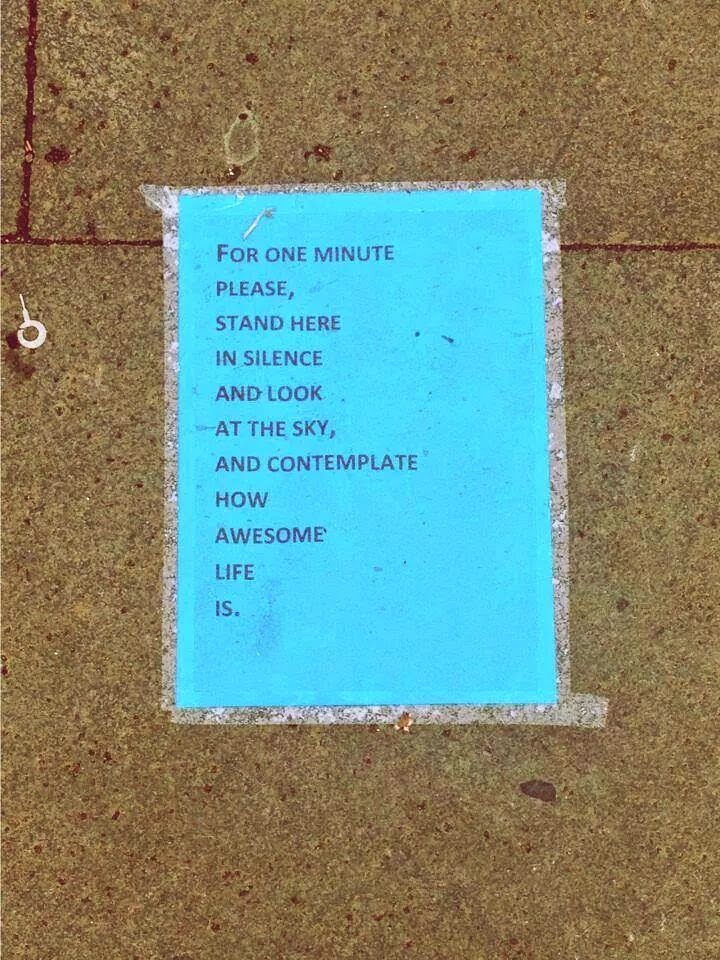 FOR ONE MINUTE
PLEASE,
STAND HERE
IN SILENCE
AND LOOK
AT THE SKY,
AND CONTEMPLATE
HOW
AWESOME
LIFE
IS.